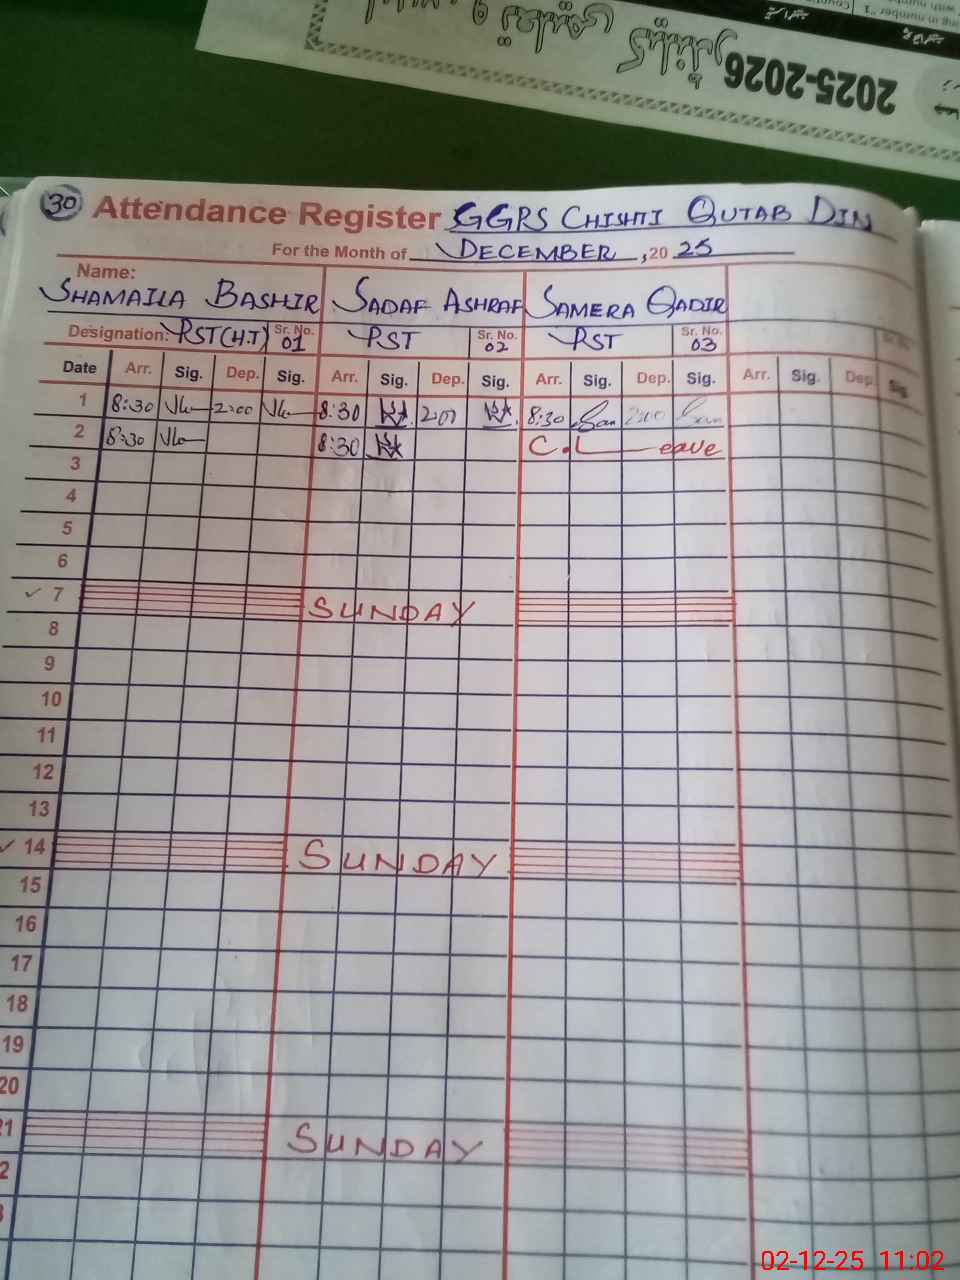 2025-2026
30 Attendance Register GGPS CHISHTI QUTAB DIN
For the Month of DECEMBER, 20 25
Name:
SHAMAILA BASHIR SADAF ASHRAF SAMERA QADIR
Designation: PST(H.T) Sr. No. 01 PST Sr. No. 02 PST Sr. No. 03
Date Arr. Sig. Dep. Sig. Arr. Sig. Dep. Sig. Arr. Sig. Dep. Sig. Arr. Sig. Dep. Sig.
1 8:30 2:00 8:30 2:00 8:30 2:00
2 8:30 8:30 C.Leave
3
4
5
6
7 SUNDAY
8
9
10
11
12
13
14 SUNDAY
15
16
17
18
19
20
21 SUNDAY
2
3
02-12-25 11:02